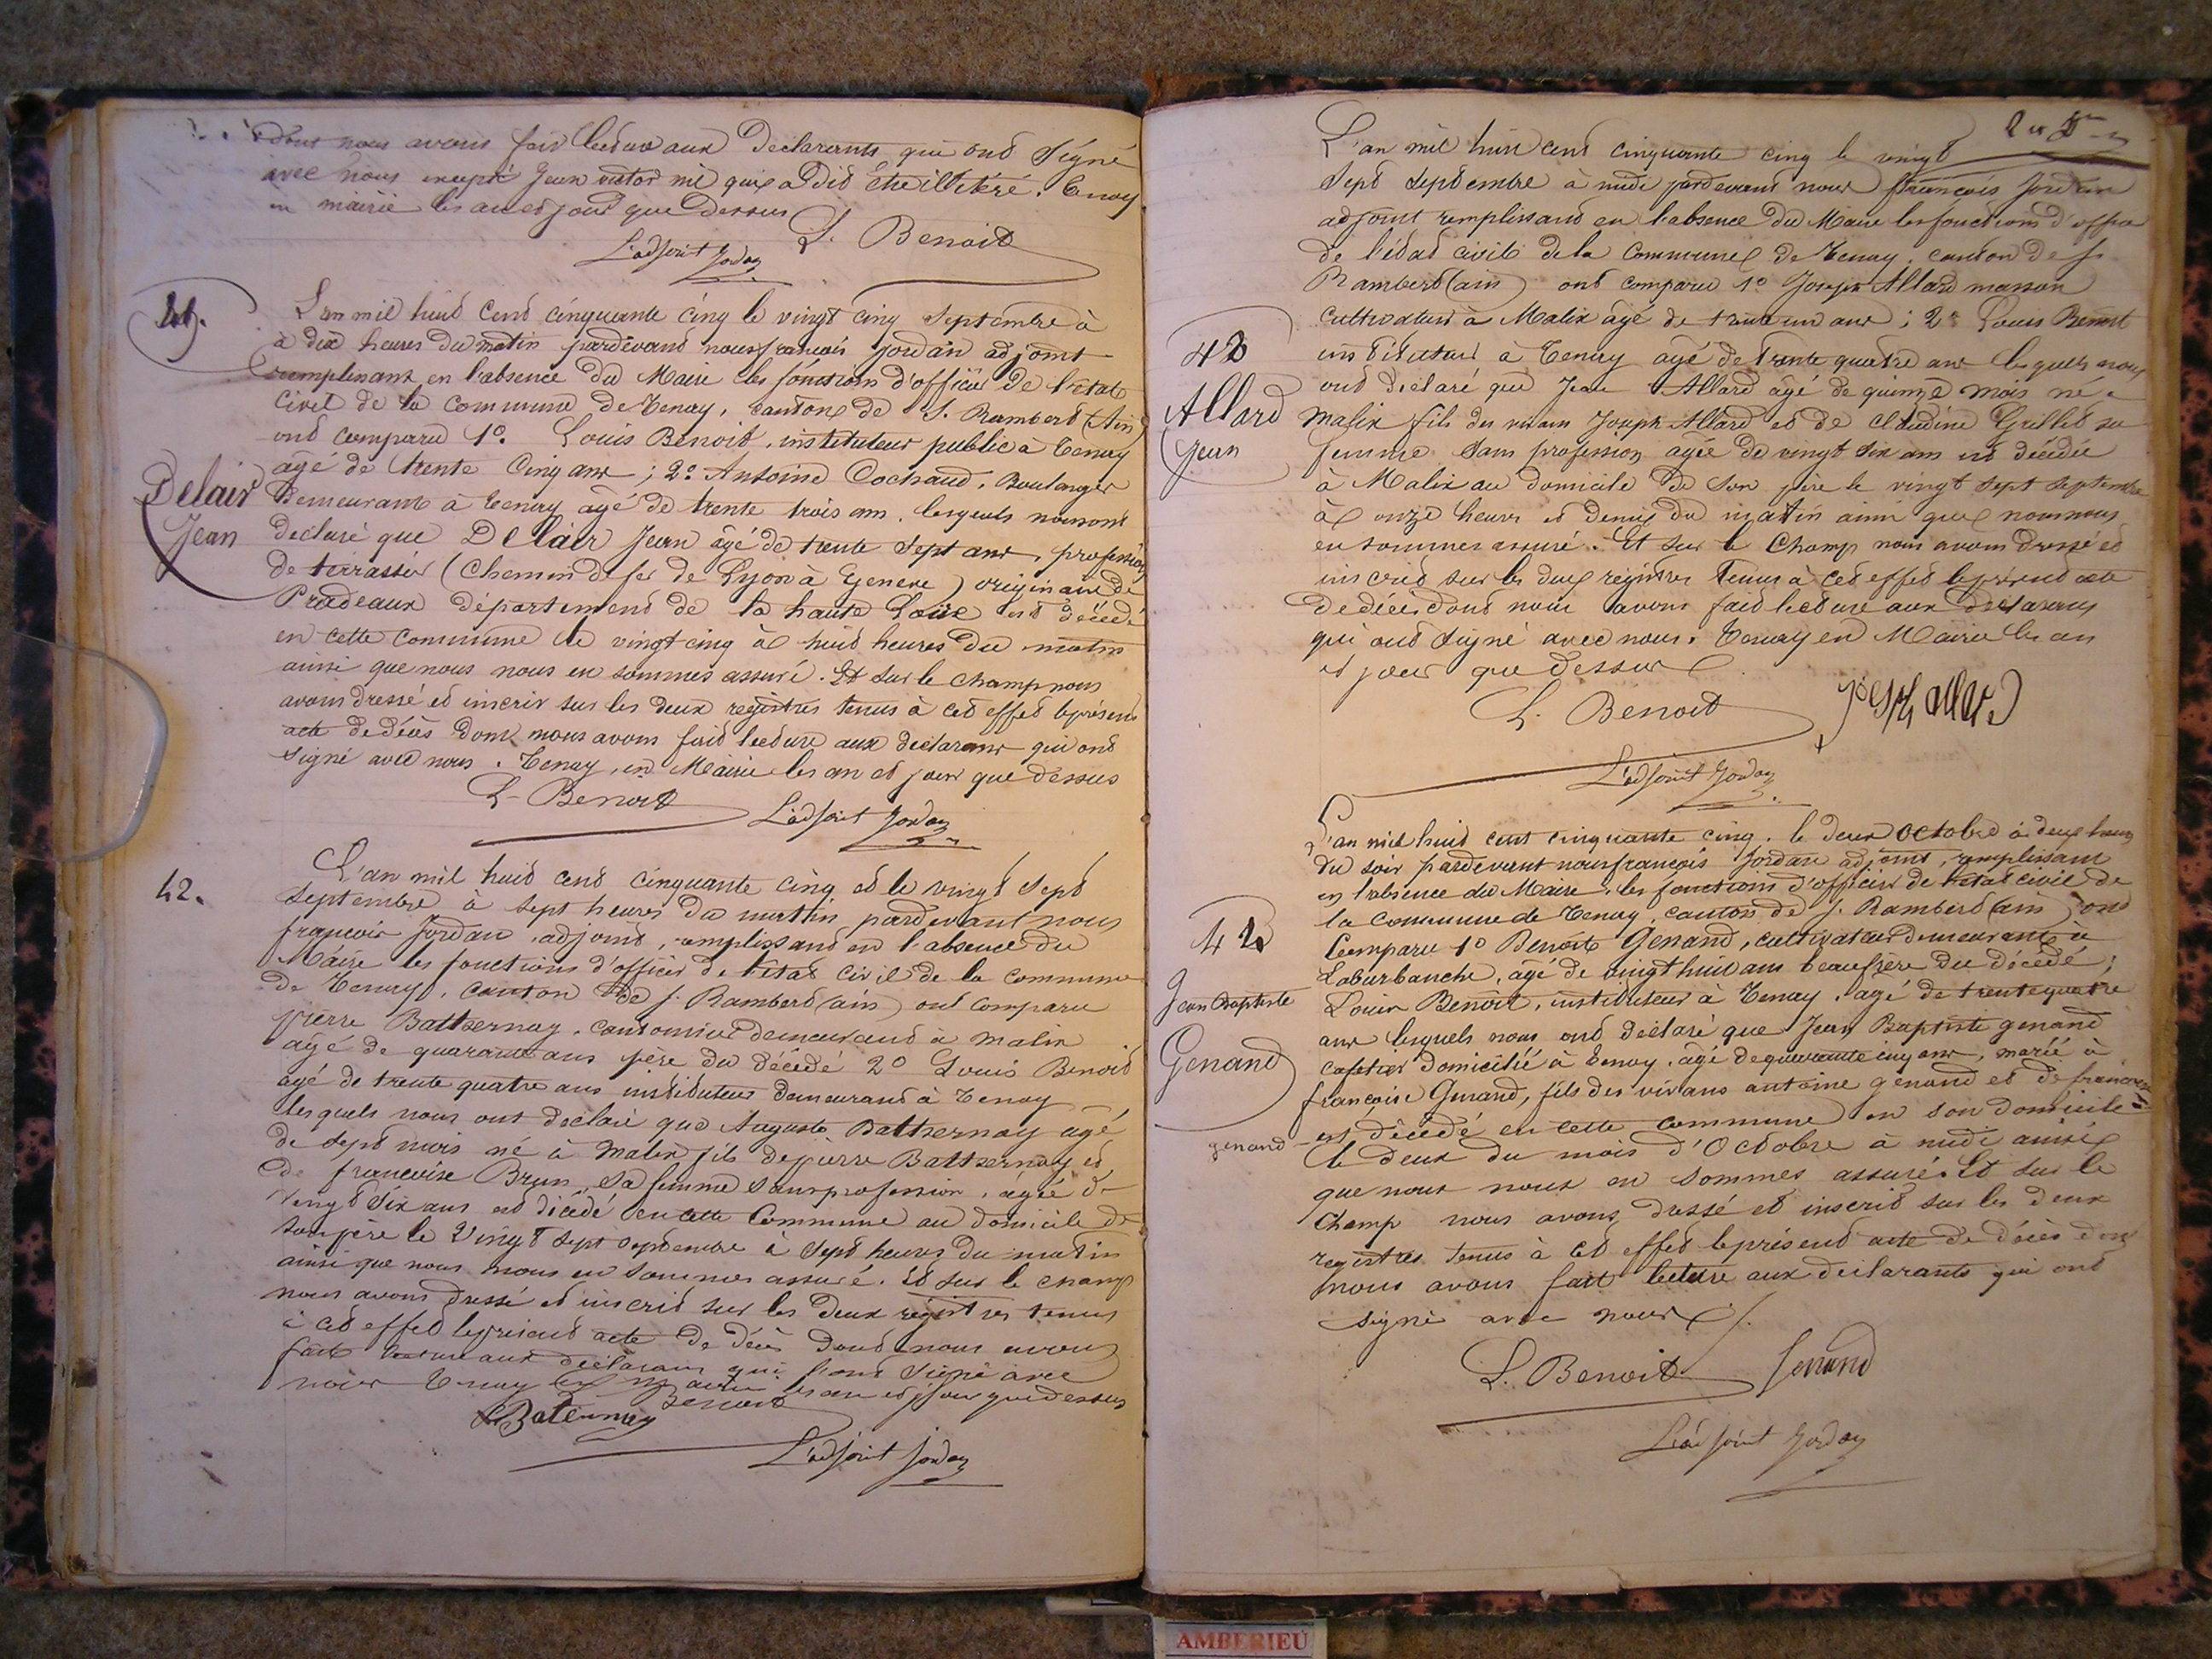 dont nous avons fait lecture aux déclarants qui ont signé
avec nous excepté Jean victor mi qui a dit être illétéré. Tenay
en mairie les an et jour que dessus
L. Benoit
L'adjoint Jordan
41.
L'an mil huit cent cinquante cinq le vingt cinq Septembre à
à dix heures du matin pardevant nous françois Jordan adjoint
remplissant en l'absence du Maire les fonctions d'officier de l'état
Civil de la Commune de Tenay, canton de S. Rambert (Ain)
ont comparu 1°. Louis Benoit, instituteur public à Tenay
agé de trente Cinq ans ; 2° Antoine Cochaud, Boulanger
Delair
Jean
demeurant à Tenay agé de trente trois ans, lesquels nous ont
déclaré que Delair Jean âgé de trente Sept ans, profession
de terrassier (Chemin de fer de Lyon à Geneve) originaire de
Pradeaux département de la haute Loire est décédé
en cette commune le vingt cinq à huit heures du matin
ainsi que nous nous en sommes assuré. Et sur le champ nous
avons dressé et inscrit sur les deux registres tenus à cet effet le présent
acte de décès dont nous avons fait lecture aux déclarants qui ont
signé avec nous. Tenay, en Mairie les an et jour que dessus
L. Benoit
L'adjoint Jordan
42.
L'an mil huit cent cinquante cinq et le vingt Sept
Septembre à sept heures du mattin pardevant nous
françois Jordan, adjoint, remplissant en l'absence du
Maire les fonctions d'officier de l'état civil de la commune
de Tenay, canton de S. Rambert (ain) ont comparu
pierre Battsernay, cantonnier demeurant à Malix
agé de quarante ans père du décédé 2° Louis Benoit
agé de trente quatre ans instituteur demeurant à Tenay
lesquels nous ont déclaré que Auguste Battsernay agé
de sept mois né à Malix fils de pierre Battsernay et
de françoise Brun, sa femme sans profession, agée de
vingt six ans est décédé en cette Commune au domicile de
son père le vingt sept septembre à sept heures du matin
ainsi que nous nous en sommes assuré. Et sur le champ
nous avons dressé et inscrit sur les deux registres tenus
à cet effet le présent acte de décès dont nous avons
fait lecture aux déclarans qui l'ont signé avec
nous Tenay en mairie les an et jour que dessus
Baternay
Benoit
L'adjoint Jordan
L'an mil huit cent cinquante cinq le vingt
Sept Septembre à midi pardevant nous françois Jordan
adjoint remplissant en l'absence du Maire les fonctions d'offi
de l'état civil de la Commune de Tenay, canton de S.
Rambert (ain) ont comparu 1° Joseph Allard masson
Cultivateur à Malix âgé de trente un ans ; 2° Louis Benoit
42
instituteur à Tenay agé de trente quatre ans lesquels nous
Allard
ont déclaré que Jean Allard âgé de quinze mois né a
Jean
Malix fils du vivan Joseph Allard et de Claudine Grillet sa
femme sans profession agée de vingt six ans est décédée
à Malix au domicile de son père le vingt sept septembre
à onze heures et demie du matin ainsi que nous nous
en sommes assuré. Et sur le Champ nous avons dressé et
inscrit sur les deux registres tenus à cet effet le présent acte
de décès dont nous avons fait lecture aux déclarans
qui ont signé avec nous. Tenay en Mairie les an
et jour que dessus
L. Benoit
Joseph allard
L'adjoint Jordan
L'an mil huit cent cinquante cinq, le deux Octobre à deux heures
du soir pardevant nous françois Jordan adjoint, remplissant
en l'absence du Maire, les fonctions d'officier de l'état civil de
la Commune de Tenay, canton de S. Rambert (ain) ont
42
Comparu 1° Benoit Genand, cultivateur demeurant à
Laburbanche, agé de vingt huit ans beaufrère du décédé ;
Jean Baptiste
Louis Benoit, instituteur à Tenay, agé de trente quatre
Genand
ans lesquels nous ont déclaré que Jean Baptiste genand
cafetier domicilié à Tenay, âgé de quarante cinq ans, marié à
françoise Genand, fils des vivans antoine genand et de françoise
genand
est décédé en cette commune en son domicile
le deux du mois d'Octobre a midi ainsi
que nous nous en sommes assuré. Et sur le
Champ nous avons dressé et inscrit sur les deux
registres tenus à cet effet le présent acte de décès dont
nous avons fait lecture aux déclarants qui ont
signé avec nous
L. Benoit
Genand
L'adjoint Jordan
AMBERIEU